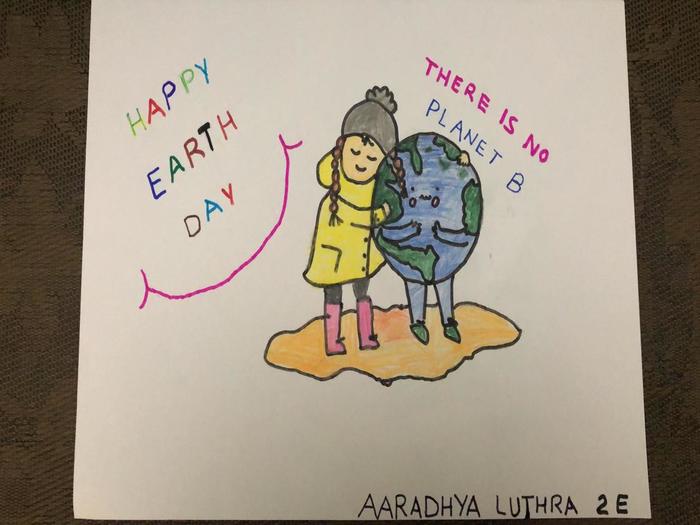 HAPPY
EARTH
DAY
THERE IS NO
PLANET B
AARADHYA LUTHRA 2E